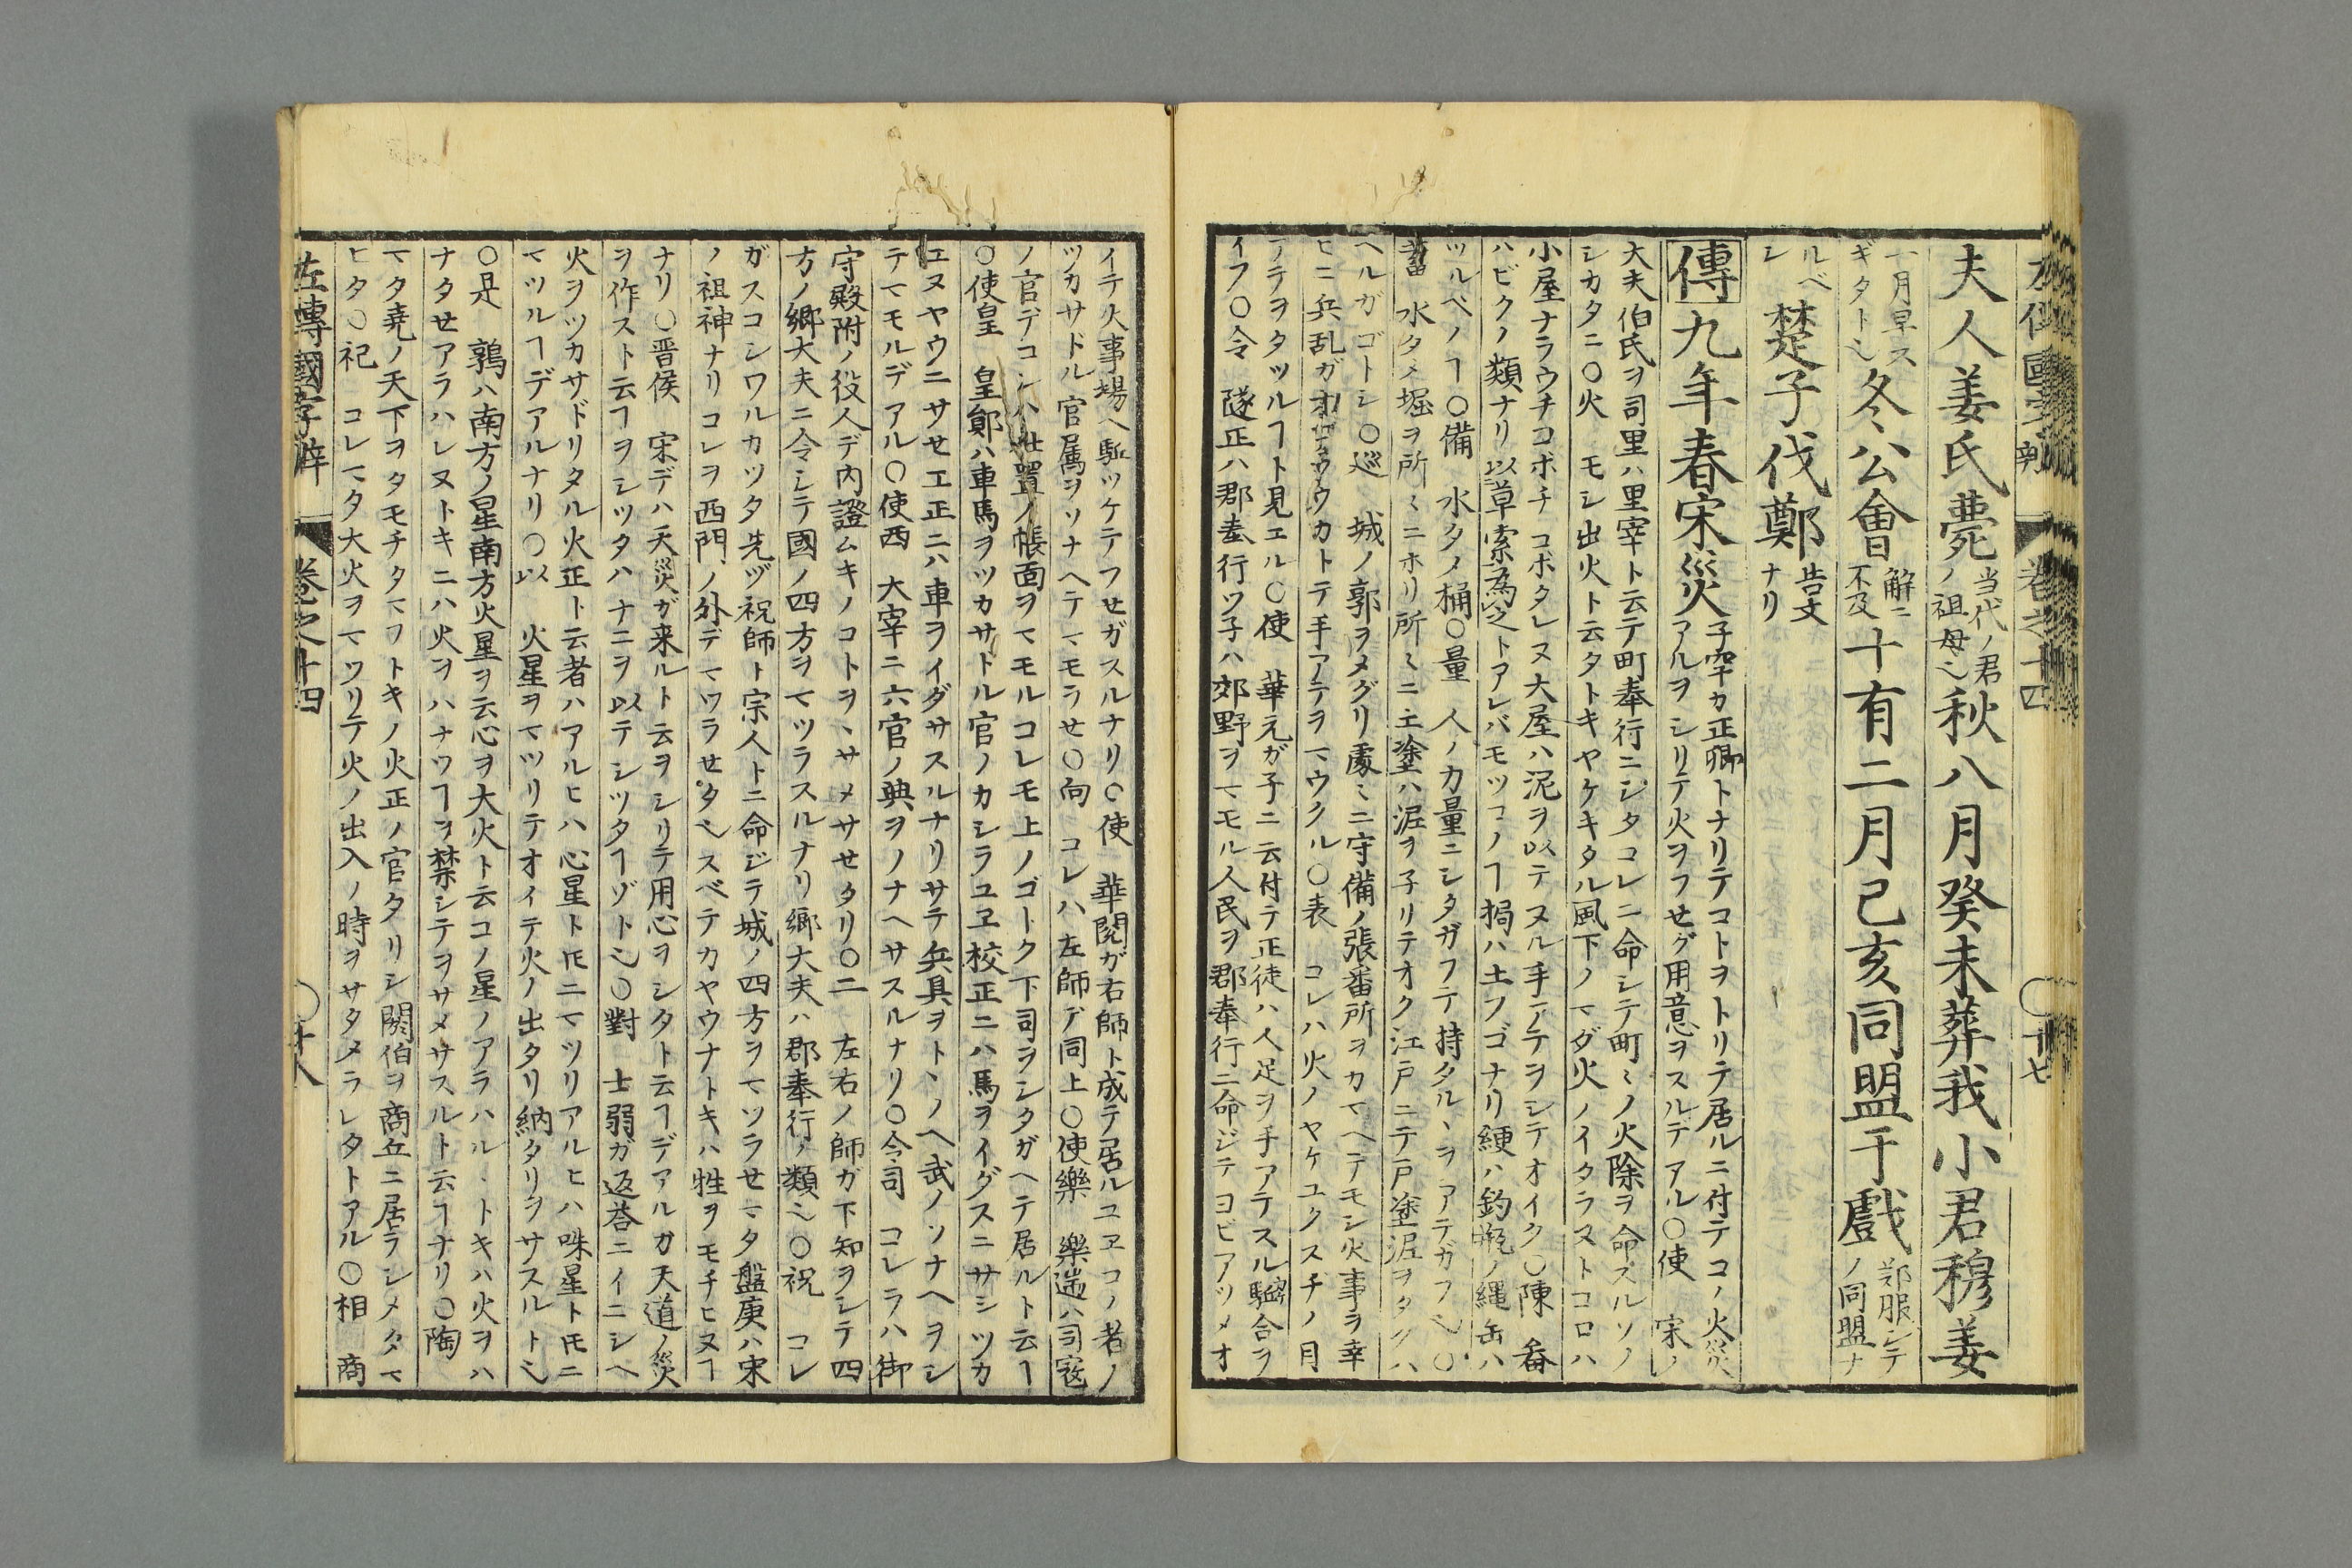 夫人姜氏薨当代ノ君ノ祖母也秋八月癸未葬我小君穆姜
一月早スギタト也冬公會解ニ不及十有二月己亥同盟于戲鄭服シテノ同盟ナ
ルベシ楚子伐鄭告文ナリ
傳九年春宋災子罕カ正卿トナリテコトヲトリテ居ルニ付テコノ火災
アルヲシリテ火ヲフセグ用意ヲスルテアル○使 宋ノ
大夫伯氏ヲ司里ハ里宰ト云テ町奉行ニシタコレニ命シテ町〻ノ火除ヲ命スルソノ
シカタニ○火 モシ出火ト云タトキヤケキタル風下ノマダ火ノイタラヌトコロハ
小屋ナラウチコボチ コボタレヌ大屋ハ泥ヲ以テヌル手アテヲシテオイタ○陳 畚
ハビクノ類ナリ以草索為之トアレバモツコノヿ挶ハ土フゴナリ綆ハ釣瓶ノ縄缶ハ
ツルベノヿ○備 水タメ桶○量 人ノ力量ニシタガフテ持タルヽヲアテガフ也○
蓄 水タメ堀ヲ所〻ニホリ所〻ニ土塗ハ泥ヲ子リテオク江戸ニテ戸塗泥ヲタクハ
ヘルガゴトシ○巡 城ノ郭ヲメグリ處〻ニ守備ノ張番所ヲカマヘテモシ火事ヲ幸
ヒニ兵乱ガオコラウカトテ手アテヲマウクル○表 コレハ火ノヤケユクスチノ目
アテヲタツルヿト見エル○使 華元ガ子ニ云付テ正徒ハ人足ヲ手アテスル驅合ヲ
イフ○令 隧正ハ郡奉行ツ子ハ郊野ヲマモル人民ヲ郡奉行ニ命ジテヨビアツメオ
イテ火事場ヘ駈ツケテフセガスルナリ○使 華閲ガ右師ト成テ居ルユヱコノ者ノ
ツカサドル官属ヲソナヘテマモラセ○向 コレハ左師デ同上○使樂 樂遄ハ司寇
ノ官デコレハ仕置ノ帳面ヲマモルコレモ上ノゴトク下司ヲシタガヘテ居ルト云ヿ
○使皇 皇鄖ハ車馬ヲツカサドル官ノカシラユヱ校正ニハ馬ヲイダスニサシツカ
エヌヤウニサセ工正ニハ車ヲイダサスルナリサテ兵具ヲトヽノヘ武ノソナヘヲシ
テマモルデアル○使西 大宰ニ六官ノ典ヲソナヘサスルナリ○令司 コレラハ御
守殿附ノ役人デ内證ムキノコトヲヽサメサセタリ○二 左右ノ師ガ下知ヲシテ四
方ノ郷大夫ニ令シテ國ノ四方ヲマツラスルナリ郷大夫ハ郡奉行ノ類也○祝 コレ
ガスコシワルカツタ先ヅ祝師ト宗人トニ命ジテ城ノ四方ヲマツラセマタ盤庚ハ宋
ノ祖神ナリコレヲ西門ノ外デマツラセタ也スベテカヤウナトキハ牲ヲモチヒヌヿ
ナリ○晋侯 宋デハ天災ガ来ルト云ヲシリテ用心ヲシタト云ヿデアルガ天道ノ災
ヲ作スト云ヿヲシツタハナニヲ以テシツタヿゾト也○對 士弱ガ返荅ニイニシヘ
火ヲツカサドリタル火正ト云者ハアルヒハ心星トモニマツリアルヒハ咮星トモニ
マツルヿデアルナリ○以 火星ヲマツリテオイテ火ノ出タリ納タリヲサスルト也
○是 鶉ハ南方ノ星南方火星ヲ云心ヲ大火ト云コノ星ノアラハルヽトキハ火ヲハ
ナタセアラハレヌトキニハ火ヲハナツヿヲ禁シテヲサメサスルト云ヿナリ○陶
マタ堯ノ天下ヲタモチタマフトキノ火正ノ官タリシ閼伯ヲ商丘ニ居ラシメタマ
ヒタ○祀 コレマタ大火ヲマツリテ火ノ出入ノ時ヲサタメラレタトアル○相 商
左傳國字辯 巻之十四 ○十八